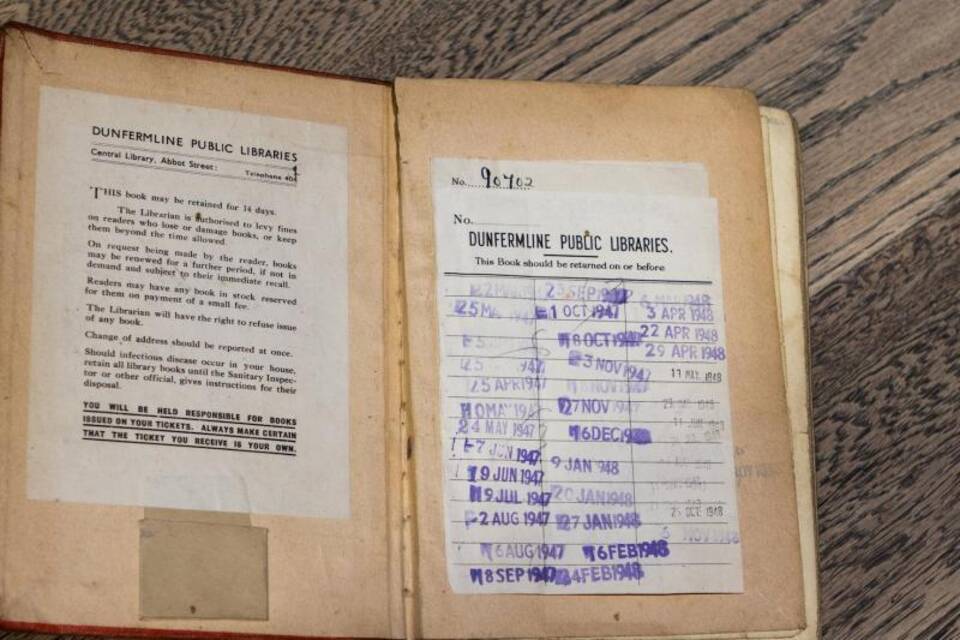 DUNFERMLINE PUBLIC LIBRARIES
Central Library, Abbot Street: Telephone
THIS book may be retained for 14 days.
The Librarian is authorised to levy fines
on readers who lose or damage books, or keep
them beyond the time allowed.
On request being made by the reader, books
may be renewed for a further period, if not in
demand and subject to their immediate recall.
Readers may have any book in stock reserved
for them on payment of a small fee.
The Librarian will have the right to refuse issue
of any book.
Change of address should be reported at once.
Should infectious disease occur in your house,
retain all library books until the Sanitary Inspec-
tor or other official, gives instructions for their
disposal.
YOU WILL BE HELD RESPONSIBLE FOR BOOKS
ISSUED ON YOUR TICKETS. ALWAYS MAKE CERTAIN
THAT THE TICKET YOU RECEIVE IS YOUR OWN.
No. 90702
No.
DUNFERMLINE PUBLIC LIBRARIES.
This Book should be returned on or before
23 SEP
25
1947
25 APR 1947
24 MAY 1947
7 JUN 1947
19 JUN 1947
9 JUL 1947
2 AUG 1947
6 AUG 1947
8 SEP 1947
1 OCT 1947
8 OCT
3 NOV 1947
27 NOV 1947
6 DEC
9 JAN 948
20 JAN 1948
27 JAN 1948
6 FEB 1948
24 FEB 1948
3 APR 1948
22 APR 1948
29 APR 1948
1948
OCT 1948